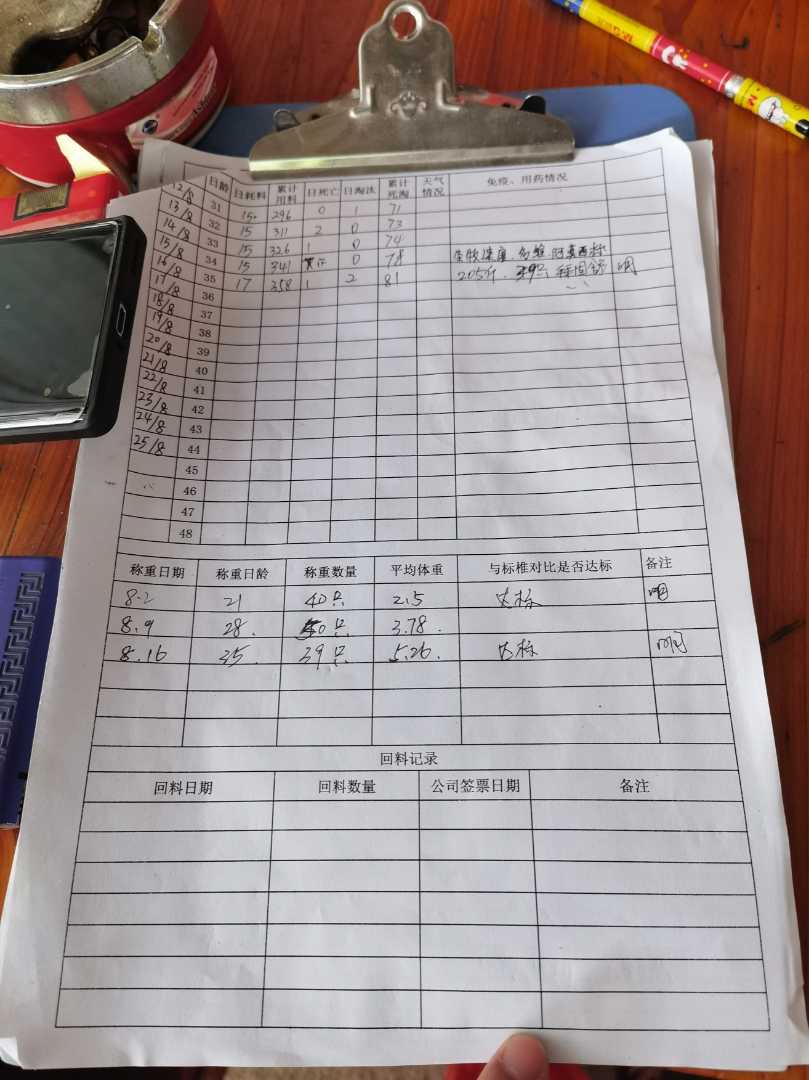 日龄 日耗料 累计用料 日死亡 日淘汰 累计死淘 天气情况 免疫、用药情况
12/8 31 15 296 0 1 71
13/8 32 15 311 2 0 73
14/8 33 15 326 1 0 74
15/8 34 15 341 0 78
16/8 35 17 358 1 2 81 205斤. 39只
17/8 36
18/8 37
19/8 38
20/8 39
21/8 40
22/8 41
23/8 42
24/8 43
25/8 44
45
46
47
48
称重日期 称重日龄 称重数量 平均体重 与标椎对比是否达标 备注
8.2 21 40只 2.5 达标
8.9 28. 50只 3.78.
8.16 35. 39只 5.26. 达标
回料记录
回料日期 回料数量 公司签票日期 备注